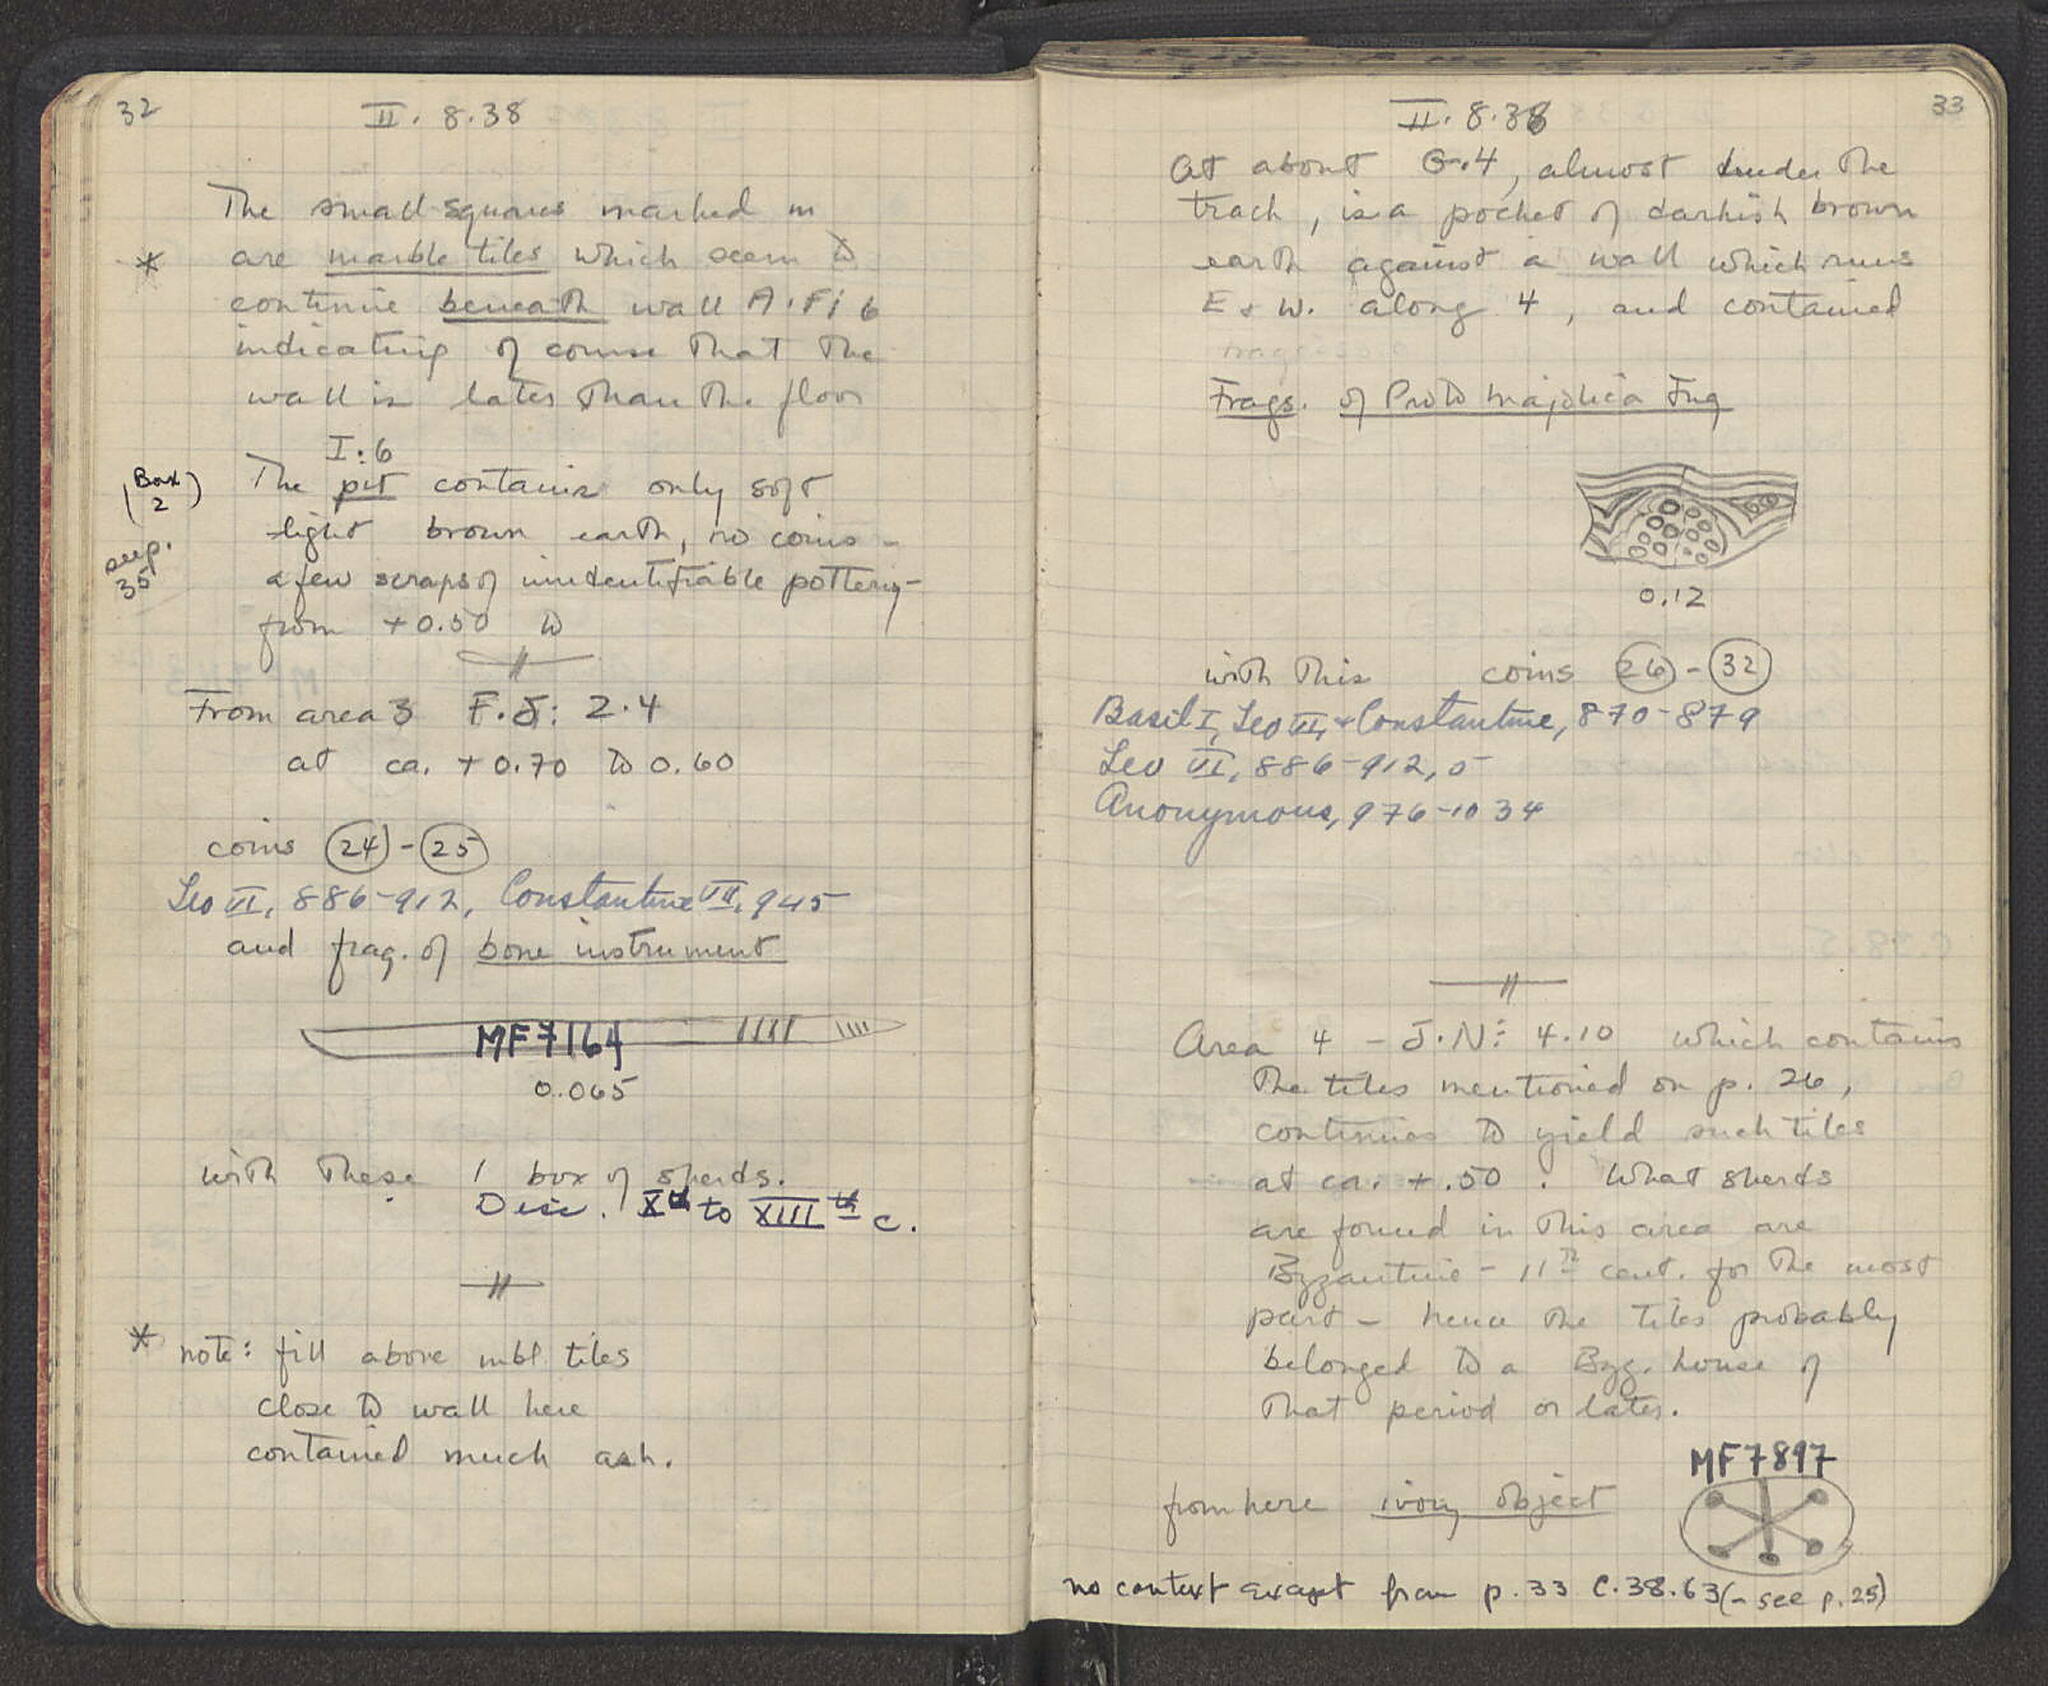 32
II. 8.38
The small squares marked m
* are marble tiles which seem to
continue beneath wall A.F; 6
indicating of course that the
wall is later than the floor
I:6
(Box 2)
The pit contains only soft
light brown earth, no coins -
see p. 35
a few scraps of unidentifiable pottery -
from +0.50 to
From area 3 F.J: 2.4
at ca. +0.70 to 0.60
coins 24 - 25
Leo VI, 886-912, Constantine VII, 945
and frag. of bone instrument
MF7164
0.065
with these 1 box of sherds.
Disc. Xth to XIIIth c.
* note: fill above mbl. tiles
close to wall here
contained much ash.
33
II. 8.38
At about G.4, almost under the
track, is a pocket of darkish brown
earth against a wall which runs
E & W. along 4, and contained
Frags. of Proto Majolica Jug
0.12
with this coins 26 - 32
Basil I, Leo VI, & Constantine, 870-879
Leo VI, 886-912, 5
Anonymous, 976-1034
Area 4 - J.N: 4.10 which contains
the tiles mentioned on p. 26,
continues to yield such tiles
at ca. +.50. What sherds
are found in this area are
Byzantine - 11th cent. for the most
part - hence the tiles probably
belonged to a Byz. house of
that period or later.
MF7897
from here ivory object
no context except from p.33 C.38.63 (- see p.25)